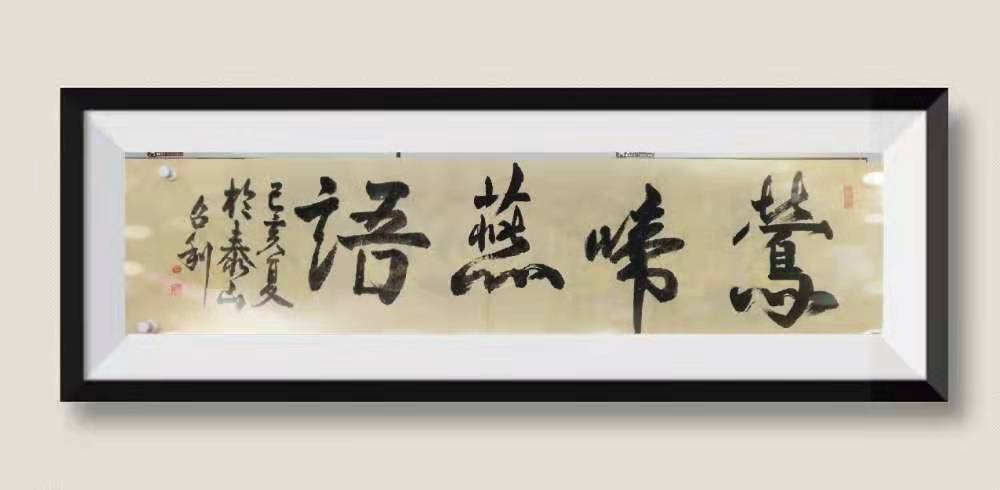 鶯啼燕語
己亥夏
於泰山
召利